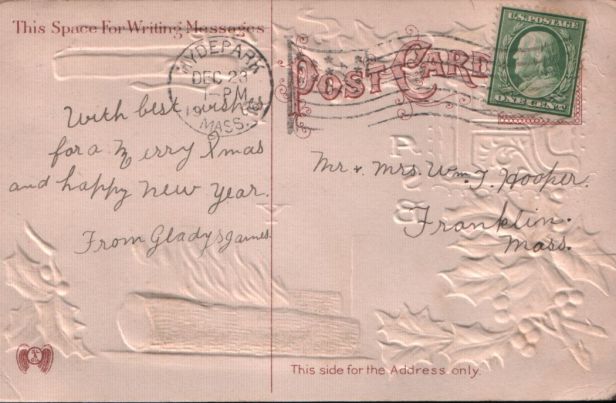 This Space For Writing Messages
HYDE PARK
DEC 23
1-PM
19
MASS.
POST CARD
U.S. POSTAGE
ONE CENT
With best wishes
for a Merry Xmas
and happy new year.
From Gladys James
Mr & Mrs. Wm. J. Hooper.
Franklin.
Mass.
This side for the Address only.